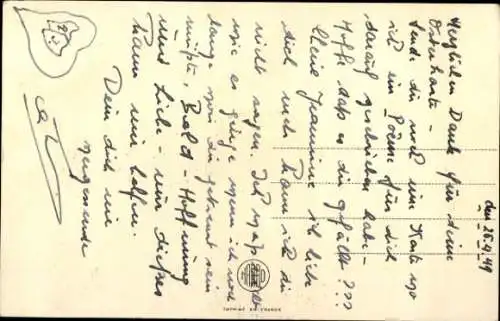 den 26.4.49
Herzlichen Dank für deine
Osterkarte –
sende dir noch eine Karte wo
ich ein poème für dich
darauf geschrieben habe –
Hoffe, dass es dir gefällt ???
kleine Jeannine ich liebe
dich und kann ich dir
nicht sagen. Ich
wie es ginge wenn ich noch
lange von dir getrennt sein
müsste, Bald – Hoffnung
und Liebe – nur dieses
kann mir helfen.
Dein dich nie
vergessende
IMPRIMÉ EN FRANCE